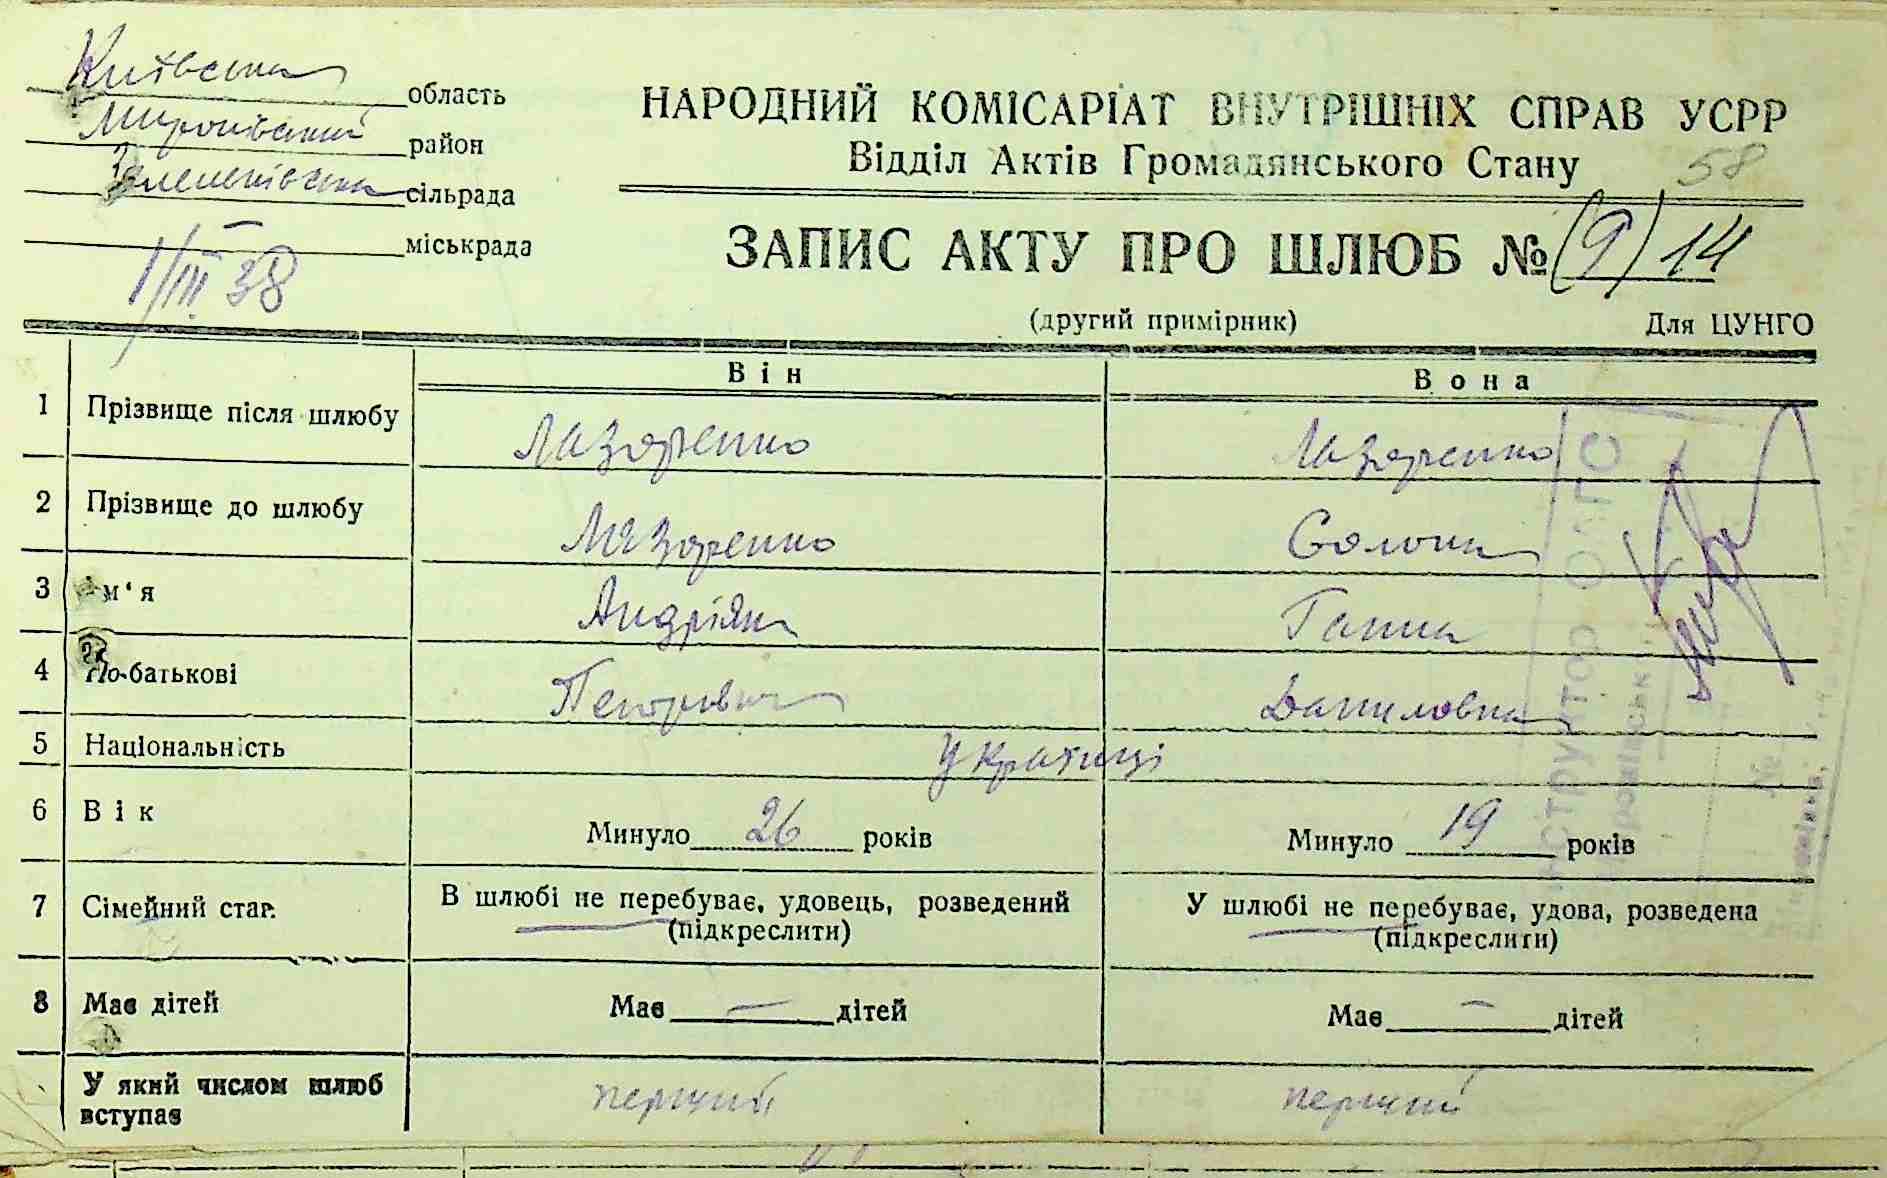 Київська область
Миронівський район
Зеленківська сільрада
міськрада
1/III 38
НАРОДНИЙ КОМІСАРІАТ ВНУТРІШНІХ СПРАВ УСРР
Відділ Актів Громадянського Стану
58
ЗАПИС АКТУ ПРО ШЛЮБ № (9) 14
(другий примірник) Для ЦУНГО
Він Вона
1 Прізвище після шлюбу Лазоренко Лазоренко
2 Прізвище до шлюбу Лазоренко Солоха
3 Ім'я Андріян Ганна
4 По-батькові Петрович Даниловна
5 Національність Українці
6 Вік Минуло 26 років Минуло 19 років
7 Сімейний стан В шлюбі не перебуває, удовець, розведений (підкреслити) У шлюбі не перебуває, удова, розведена (підкреслити)
8 Має дітей Має — дітей Має — дітей
У який числом шлюб вступає перший перший
Інструктор ОАГС